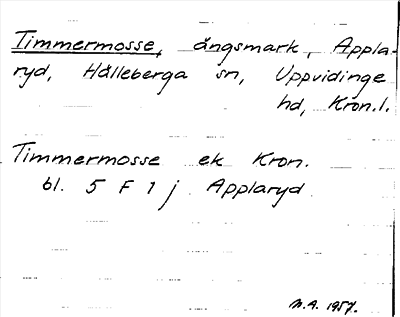 Timmermosse, ängsmark, Appla-
ryd, Hälleberga sn, Uppvidinge
hd, Kron.l.
Timmermosse ek Kron.
bl. 5 F 1 j Applaryd
M.A. 1957.